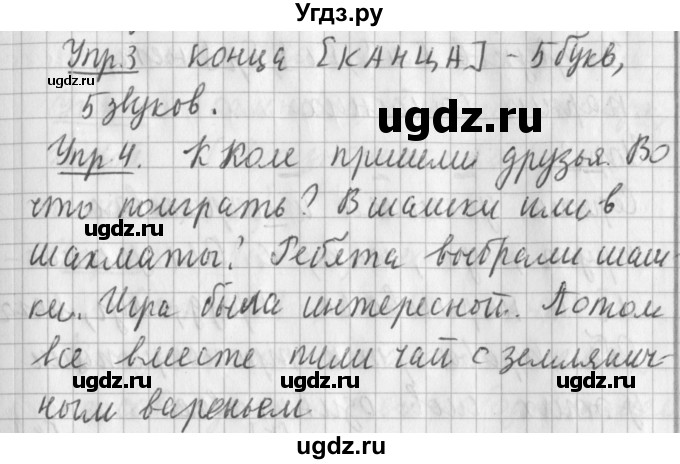 Угдз.ру
Упр.3 конца [КАНЦА] - 5 букв,
ugdz.ru
5 звуков.
ugdz.ru
Упр 4. К Коле пришли друзья. Во
ugdz.ru
что поиграть? В шашки или в
ugdz.ru
шахматы? Ребята выбрали шаш-
ки. Игра была интересной. Потом
ugdz.ru ugdz.ru
все вместе пили чай с землянич-
ugdz.ru ugdz.ru
ным вареньем.
ugdz.ru